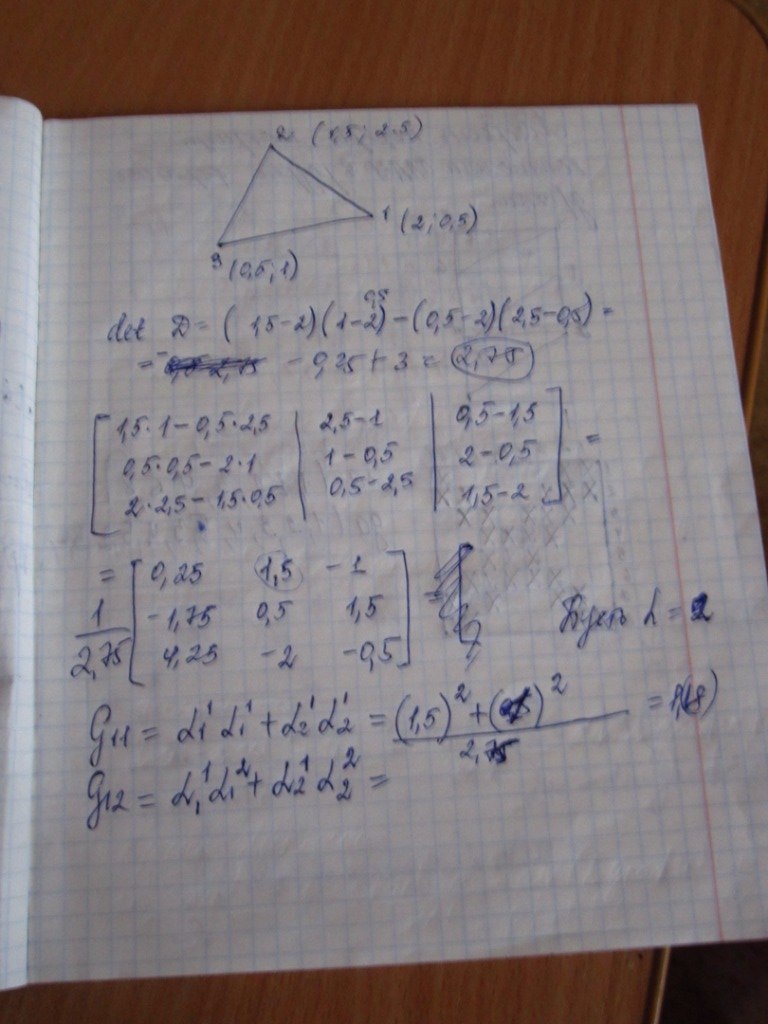 2 (1,5; 2.5)
1 (2; 0,5)
3 (0,5; 1)
0,5
det D = (1,5-2)(1-2) - (0,5-2)(2,5-0,5) =
= - 0,25 + 3 = 2,75
1,5·1 - 0,5·2,5 2,5-1 0,5-1,5
0,5·0,5 - 2·1 1-0,5 2-0,5 =
2·2,5 - 1,5·0,5 0,5-2,5 1,5-2
= 0,25 1,5 -1
1/2,75 -1,75 0,5 1,5 =
4,25 -2 -0,5
Пусть L = 2
G11 = α₁¹ α₁¹ + α₂¹ α₂¹ = (1,5)² + ( )² / 2,75 =
G12 = α₁¹ α₁² + α₂¹ α₂² =